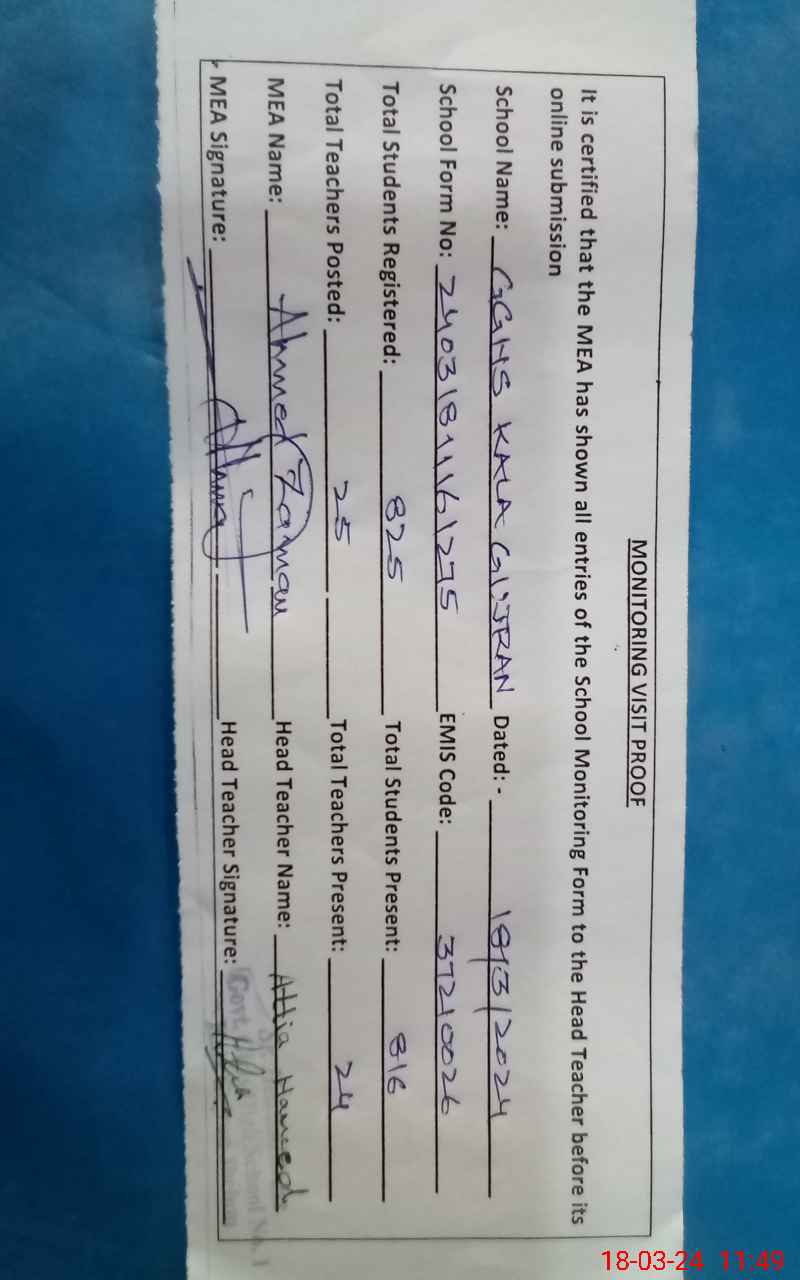 MONITORING VISIT PROOF
It is certified that the MEA has shown all entries of the School Monitoring Form to the Head Teacher before its
online submission
School Name: GGHS KALA GUJRAN Dated: - 18/3/2024
School Form No: 2403181161275 EMIS Code: 37210026
Total Students Registered: 825 Total Students Present: 816
Total Teachers Posted: 25 Total Teachers Present: 24
MEA Name: Ahmed Zaman Head Teacher Name: Attia Hameed
MEA Signature: Head Teacher Signature:
Govt. School No. 1
18-03-24 11:49